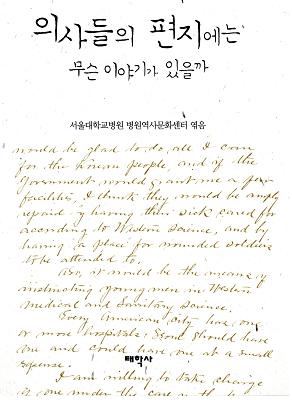 의사들의 편지에는
무슨 이야기가 있을까
서울대학교병원 병원역사문화센터 엮음
would be glad to do all I can
for the Korean people and if the
Government would grant me a few
facilities, I think they would be amply
repaid by having their sick cared for
according to Western science, and by
having a place for wounded soldiers
to be attended to.
Also, it would be the means of
instructing young men in Western
medical and Sanitary Science.
Every American City has one
or more hospitals; Seoul should have
one and could have one at a small
expense.
태학사
I am willing to take charge
of one under the care of the